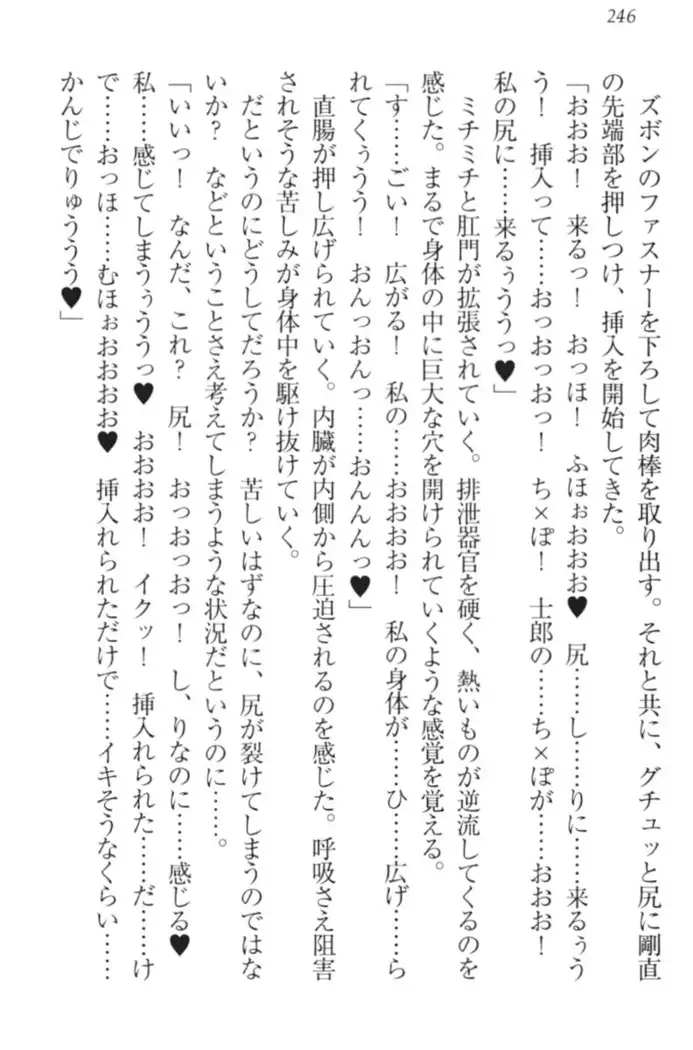 246
ズボンのファスナーを下ろして肉棒を取り出す。それと共に、グチュッと尻に剛直
の先端部を押しつけ、挿入を開始してきた。
「おおお！　来るっ！　おっほ！　ふほぉおおお♥　尻……し……りに……来るぅう
う！　挿入って……おっおっおっ！　ち×ぽ！　士郎の……ち×ぽが……おおお！
私の尻に……来るぅううっ♥」
ミチミチと肛門が拡張されていく。排泄器官を硬く、熱いものが逆流してくるのを
感じた。まるで身体の中に巨大な穴を開けられていくような感覚を覚える。
「す……ごい！　広がる！　私の……おおおお！　私の身体が……ひ……広げ……ら
れてくぅうう！　おんっおんっ……おんんんっ♥」
直腸が押し広げられていく。内臓が内側から圧迫されるのを感じた。呼吸さえ阻害
されそうな苦しみが身体中を駆け抜けていく。
だというのにどうしてだろうか？　苦しいはずなのに、尻が裂けてしまうのではな
いか？　などということさえ考えてしまうような状況だというのに……。
「いいっ！　なんだ、これ？　尻！　おっおっおっ！　し、りなのに……感じる♥
私……感じてしまうぅううっ♥　おおおお！　イクッ！　挿入れられた……だ……け
で……おっほ……むほぉおおおお♥　挿入れられただけで……イキそうなくらい……
かんじでりゅううう♥」